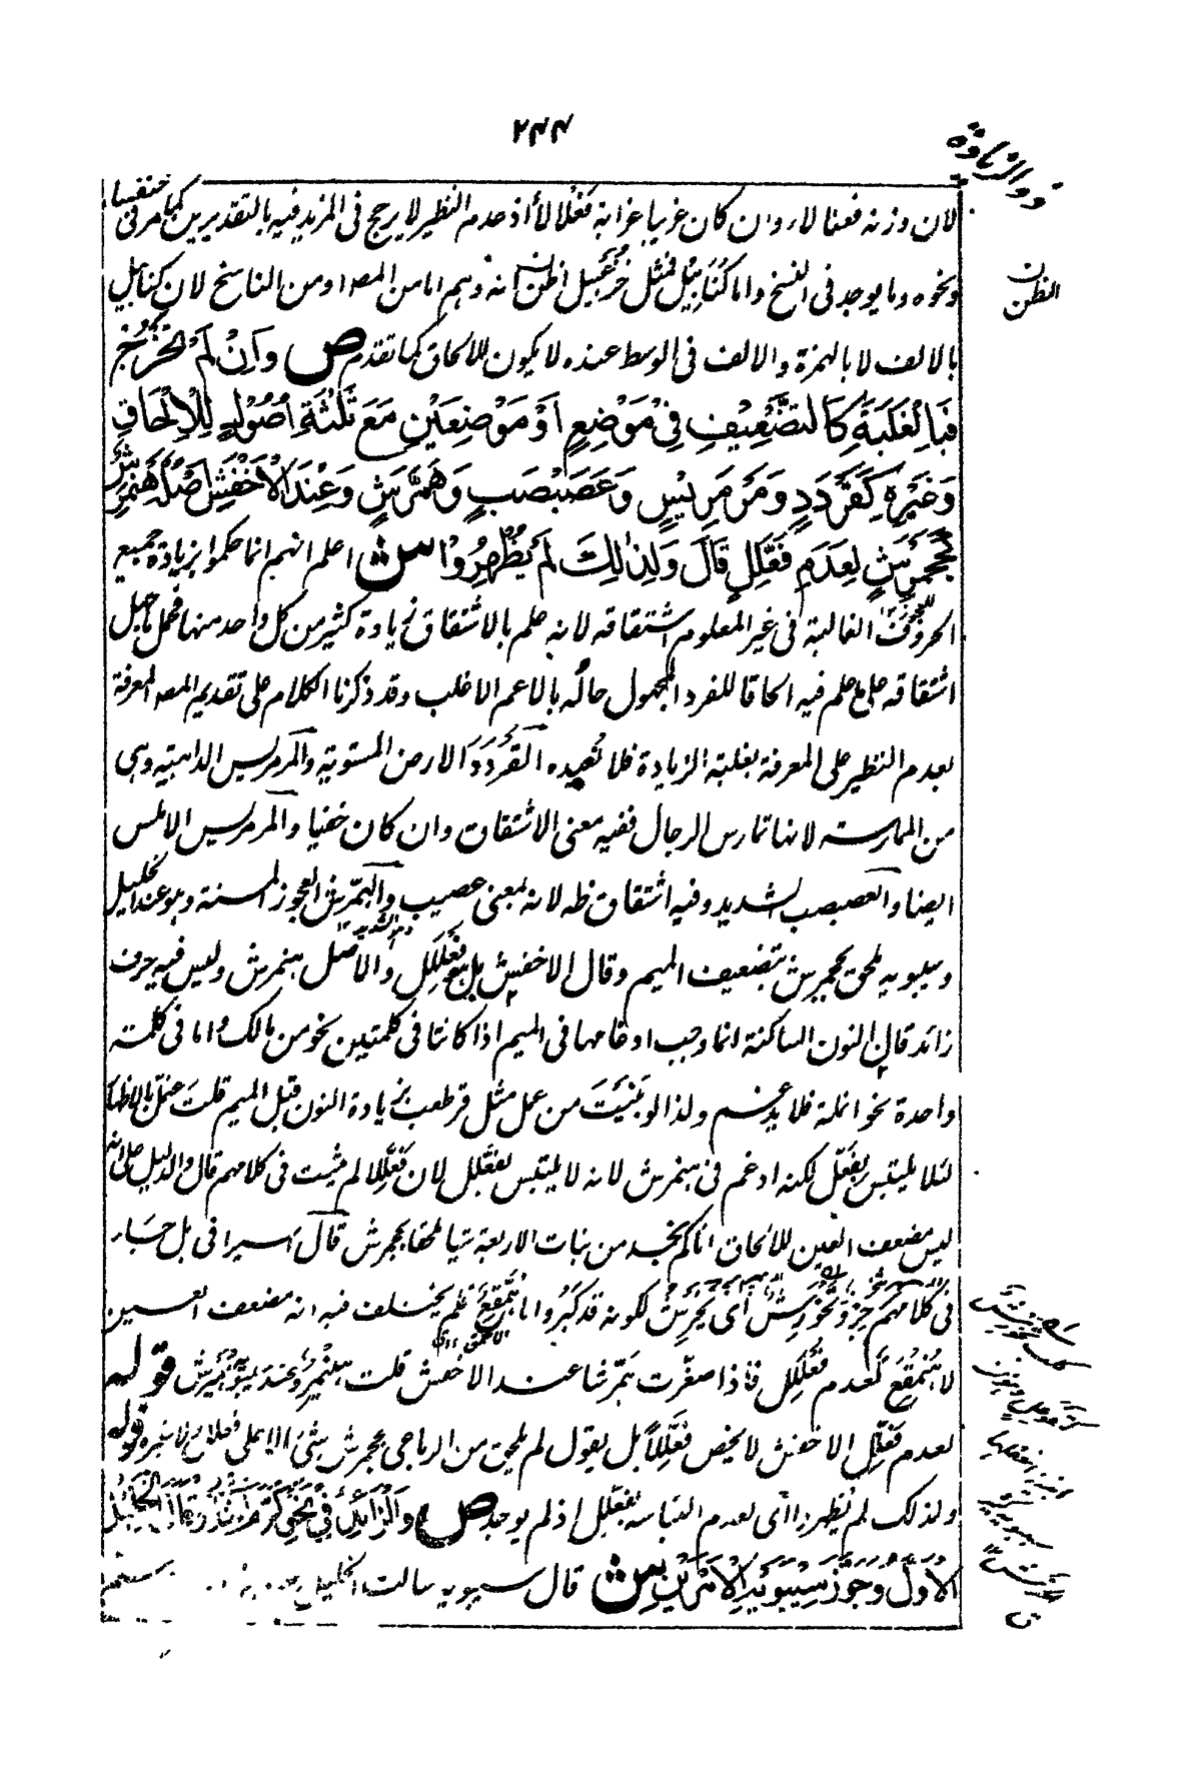 ٢٤٤
ذو الزيادة
لان وزنه فعنا لاء وان كان غريبا غرابة فعنلالا أذ عدم النظير لا يرجح فى المزيد فيه بالتقديرين كما مر فى خنفساء
ونحوه وما يوجد فى النسخ واما كُنَابيل فمثل خُزَعْبيل اظن انه وهم اما من المص او من الناسخ لان كنابيل
الظن
بالالف لا بالهمزة والالف فى الوسط عنده لا يكون للالحاق كما تقدم ص وَاِنْ لَمْ تَخْرُجْ
فَبِالْغَلَبَةِ كَالتَّضْعِيْفِ فِىْ مَوْضِعٍ اَوْ مَوْضِعَيْنِ مَعَ ثَلٰثَةِ اُصُوْلٍ لِلْاِلْحَاقِ
وَغَيْرِهٖ كَقَرْدَدٍ وَمَرْمَرِيْسٍ وَعَصَبْصَبٍ وَهَمَّرِشٍ وَعِنْدَ الْاَخْفَشِ اَصْلُهٗ هَنْمَرِشٌ
كَجَحْمَرِشٍ لِعَدَمِ فَعَّلِلٍ قَالَ وَلِذٰلِكَ لَمْ يُظْهِرُوْا ش اعلم انهم انما حكموا بزيادة جميع
الحروف الغالبة فى غير المعلوم اشتقاقه لانه علم بالاشتقاق زيادة كثير من كل واحد منها فحمل ما جهل
اشتقاقه على ما علم فيه الحاقا للفرد المجهول حاله بالاعم الاغلب وقد ذكرنا الكلام على تقديم المص المعرفة
بعدم النظير على المعرفة بغلبة الزيادة فلا نعيده القَرْدَد الارض المستوية والمرمريس الداهية وهى
من الممارسة لانها تمارس الرجال ففيه معنى الاشتقاق وان كان خفيا والمرمريس الاملس
ايضا والعصبصب الشديد وفيه اشتقاق ظه لانه بمعنى عصيب والهمّرش العجوز المسنة وهو عند الخليل
وسيبويه ملحق بجحمرش بتضعيف الميم وقال الاخفش بل هو فَعْلَلِل والاصل هنمرش وليس فيه حرف
زائد قال النون الساكنة انما وجب ادغامها فى الميم اذا كانتا فى كلمتين نحو من مالك واما فى كلمة
واحدة نحو انملة فلا يدغم ولذا لو بَنَيْتَ من عمل مثل قرطعب بزيادة النون قبل الميم قلت عنمل بالاظهار
لئلا يلتبس بفَعَّل لكنه ادغم فى هنمرش لانه لا يلتبس بفعَّلل لان فَعَّلِلا لم يثبت فى كلامهم قال والدليل على انه
ليس مضعف العين للالحاق انا لم نجد من بنات الاربعة شيا ملحقا بجحمرش قال السيرافى بل جاء
فى كلامهم جِرْوٌ نَخْوَرِش اى نَخْرِش لكونه قد كبُر واما هُمَّقِع فلم يختلف فيه انه مضعف العين
لا هُنْمَقِع لعدم فُعْلَلِل فاذا صغّرت همّرشا عند الاخفش قلت هنيمر وعند سيبويه هميرش قوله
لعدم فَعَّلِل الاخفش لا يخص فَعَّلِلاً بل يقول لم يلحق من الرباعى بجحمرش شئ لا على فعلل ولا غيره قوله
ولذلك لم يظهروا اى لعدم التباسه بفعّلل اذ لم يوجد ص وَالزَّائِدُ فِىْ نَحْوِ كَرَّمَ الثَّانِىْ وَقَالَ الْخَلِيْلُ
الْاَوَّلُ وَجَوَّزَ سِيْبَوَيْهِ الْاَمْرَيْنِ ش قال سيبويه سالت الخليل